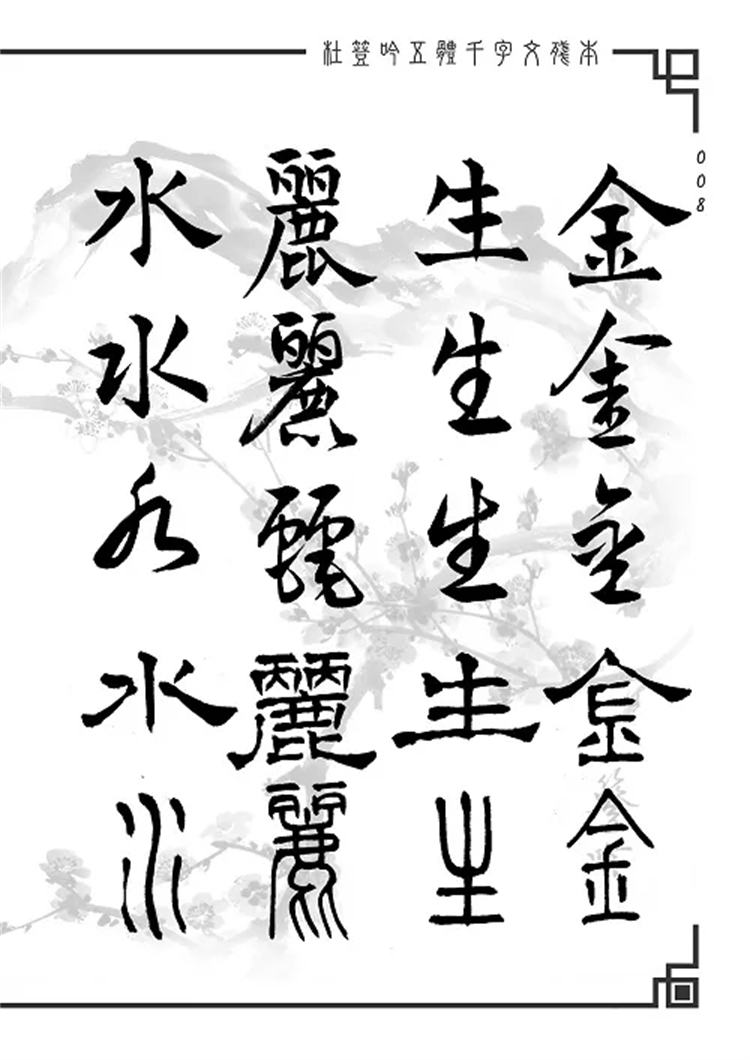 杜吟五體千字文殘本
008
金金金金金
生生生生生
麗麗麗麗麗
水水水水水